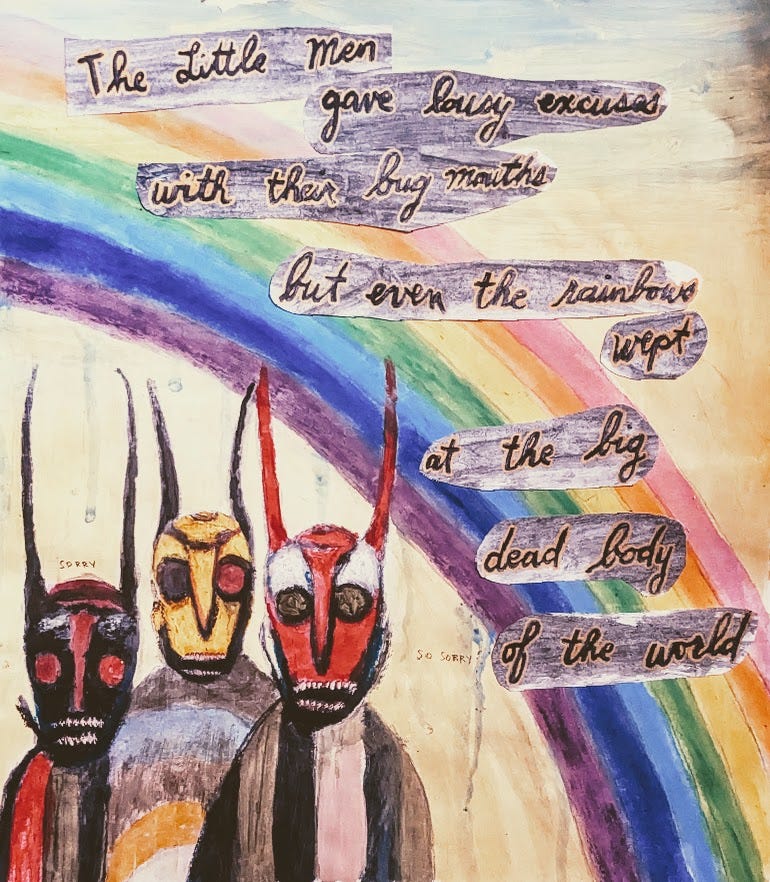 The Little Men
gave lousy excuses
with their bug mouths
but even the rainbows
wept
at the big
dead body
of the world
SORRY
SO SORRY